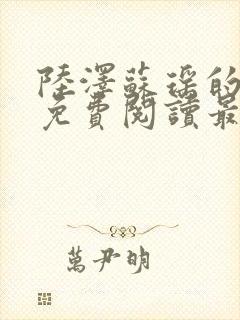 陸澤蘇瑶的
免費閱讀最
萬尹明